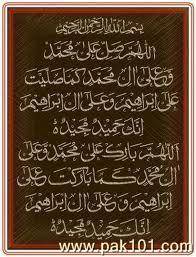 بسم الله الرحمن الرحيم
اللهم صل على محمد
وعلى ال محمد كما صليت
على ابراهيم وعلى ال ابراهيم
انك حميد مجيد
اللهم بارك على محمد وعلى
ال محمد كما باركت وعلى
ابراهيم وعلى ال ابراهيم
انك حميد مجيد
www.pak101.com